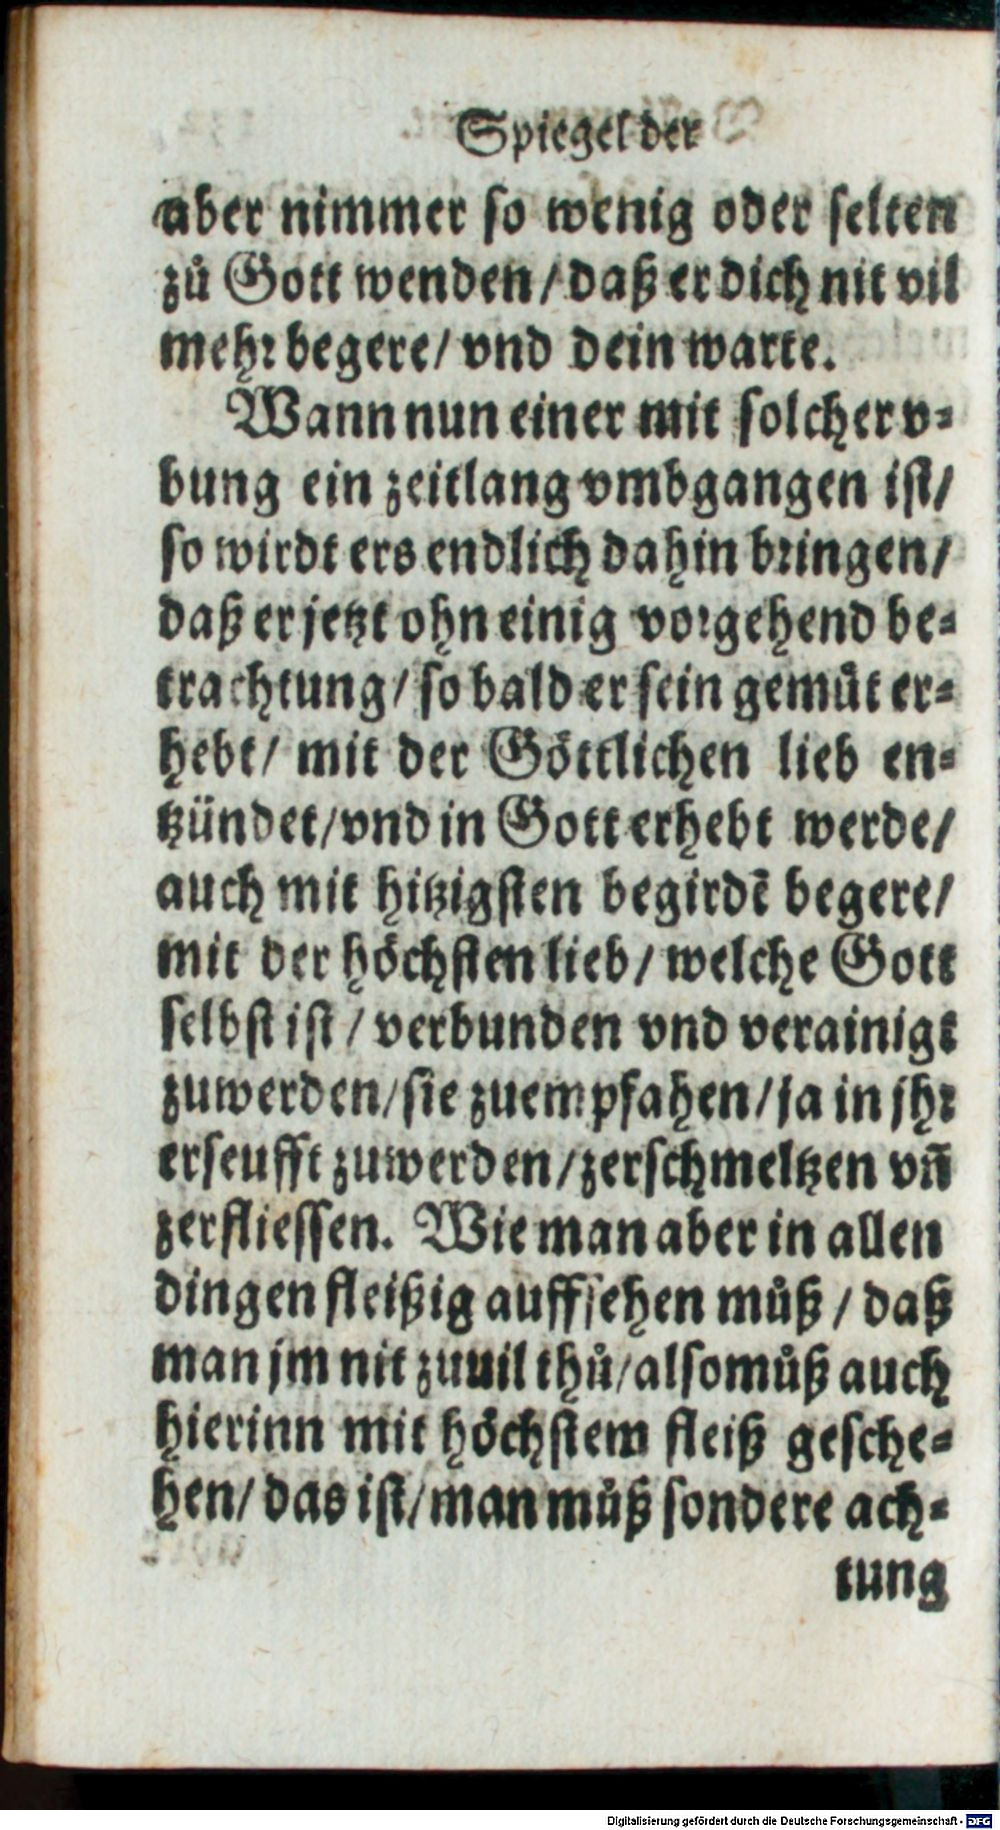 Spiegel der
aber nimmer so wenig oder selten
zů Gott wenden/ daß er dich nit vil
mehr begere/ vnd dein warte.
Wann nun einer mit solcher v-
bung ein zeitlang vmbgangen ist/
so wirdt ers endlich dahin bringen/
daß er jetzt ohn einig vorgehend be-
trachtung/ so bald er sein gemůt er-
hebt/ mit der Göttlichen lieb en-
tzündet/ vnd in Gott erhebt werde/
auch mit hitzigsten begirdẽ begere/
mit der höchsten lieb/ welche Gott
selbst ist/ verbunden vnd verainigt
zuwerden/ sie zuempfahen/ ja in jhr
erseufft zuwerden/ zerschmeltzen vñ
zerfliessen. Wie man aber in allen
dingen fleißig auffsehen můß/ daß
man jm nit zuuil thů/ also můß auch
hierinn mit höchstem fleiß gesche-
hen/ das ist/ man můß sondere ach-
tung
Digitalisierung gefördert durch die Deutsche Forschungsgemeinschaft - DFG